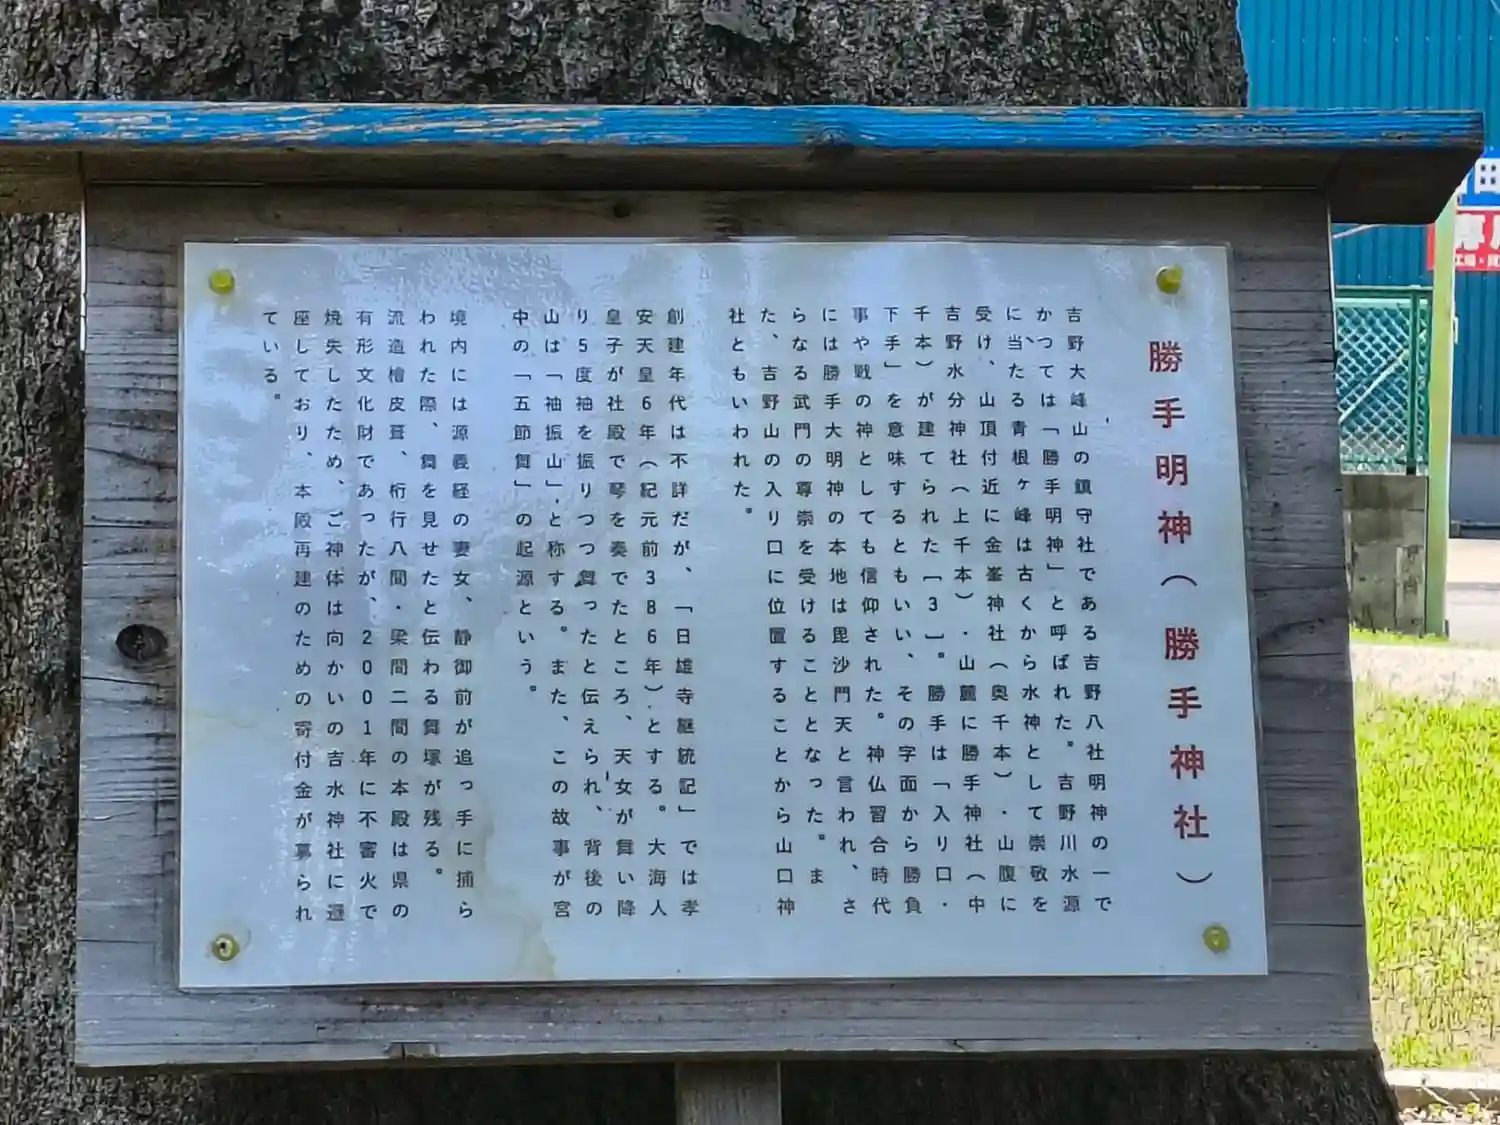 勝手明神（勝手神社）
吉野大峰山の鎮守社である吉野八社明神の一で
かつては「勝手明神」と呼ばれた。吉野川水源
に当たる青根ヶ峰は古くから水神として崇敬を
受け、山頂付近に金峯神社（奥千本）・山腹に
吉野水分神社（上千本）・山麓に勝手神社（中
千本）が建てられた［3］。勝手は「入り口・
下手」を意味するともいい、その字面から勝負
事や戦の神としても信仰された。神仏習合時代
には勝手大明神の本地は毘沙門天と言われ、さ
らなる武門の尊崇を受けることとなった。ま
た、吉野山の入り口に位置することから山口神
社ともいわれた。
創建年代は不詳だが、「日雄寺継統記」では孝
安天皇6年（紀元前386年）とする。大海人
皇子が社殿で琴を奏でたところ、天女が舞い降
り5度袖を振りつつ舞ったと伝えられ、背後の
山は「袖振山」と称する。また、この故事が宮
中の「五節舞」の起源という。
境内には源義経の妻女、静御前が追っ手に捕ら
われた際、舞を見せたと伝わる舞塚が残る。
流造檜皮葺、桁行八間・梁間二間の本殿は県の
有形文化財であったが、2001年に不審火で
焼失したため、ご神体は向かいの吉水神社に遷
座しており、本殿再建のための寄付金が募られ
ている。
田